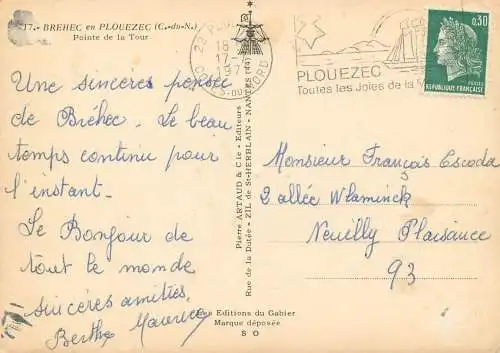 17.- BREHEC en PLOUEZEC (C.-du-N.)
Pointe de la Tour
18 H
17-7
PLOUEZEC
Toutes les Joies de la
0,30
REPUBLIQUE FRANÇAISE
Une sincères pensée
de Bréhec. Le beau
temps continu pour
l'instant.
Le Bonjour de
tout le monde
sincères amitiés.
Berthe Maurice
Pierre ARTAUD & Cie - Editeurs
Rue de la Dutée - ZIL de St-HERBLAIN - NANTES (44)
Monsieur François Escoda
2 allée Wlaminck
Neuilly Plaisance
93
Les Editions du Gabier
Marque déposée
S O